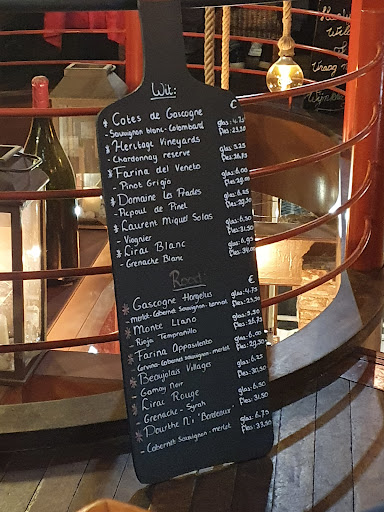 Wit: €
* Côtes de Gascogne
- Sauvignon blanc - Colombard glas: 4.75 fles: 23,50
* Heritage Vineyards
- Chardonnay reserve glas: 5.25 fles: 26,75
* Farina del Veneto
- Pinot Grigio glas: 6.00 fles: 29,00
* Domaine La Prades
- Picpoul de Pinet glas: 6.25 fles: 29,50
* Laurent Miquel Solas
- Viognier glas: 6.50 fles: 31,50
* Lirac Blanc
- Grenache Blanc glas: 6.95 fles: 34,00
Rood: €
* Gascogne Horgelus glas: 4.75
- merlot - Cabernet Sauvignon - tannat fles: 23,50
* Monte Llano glas: 5.50
- Rioja Tempranillo fles: 26,75
* Farina Appassilento glas: 6.00
- Corvina - Cabernet sauvignon - merlot fles: 29,00
* Beaujolais Villages glas: 6.25
- Gamay Noir fles: 30,50
* Lirac Rouge glas: 6.50
- Grenache - Syrah fles: 31,50
* Dourthe N:1 'Bordeaux' glas: 6.75
- Cabernet Sauvignon - merlot fles: 33,50